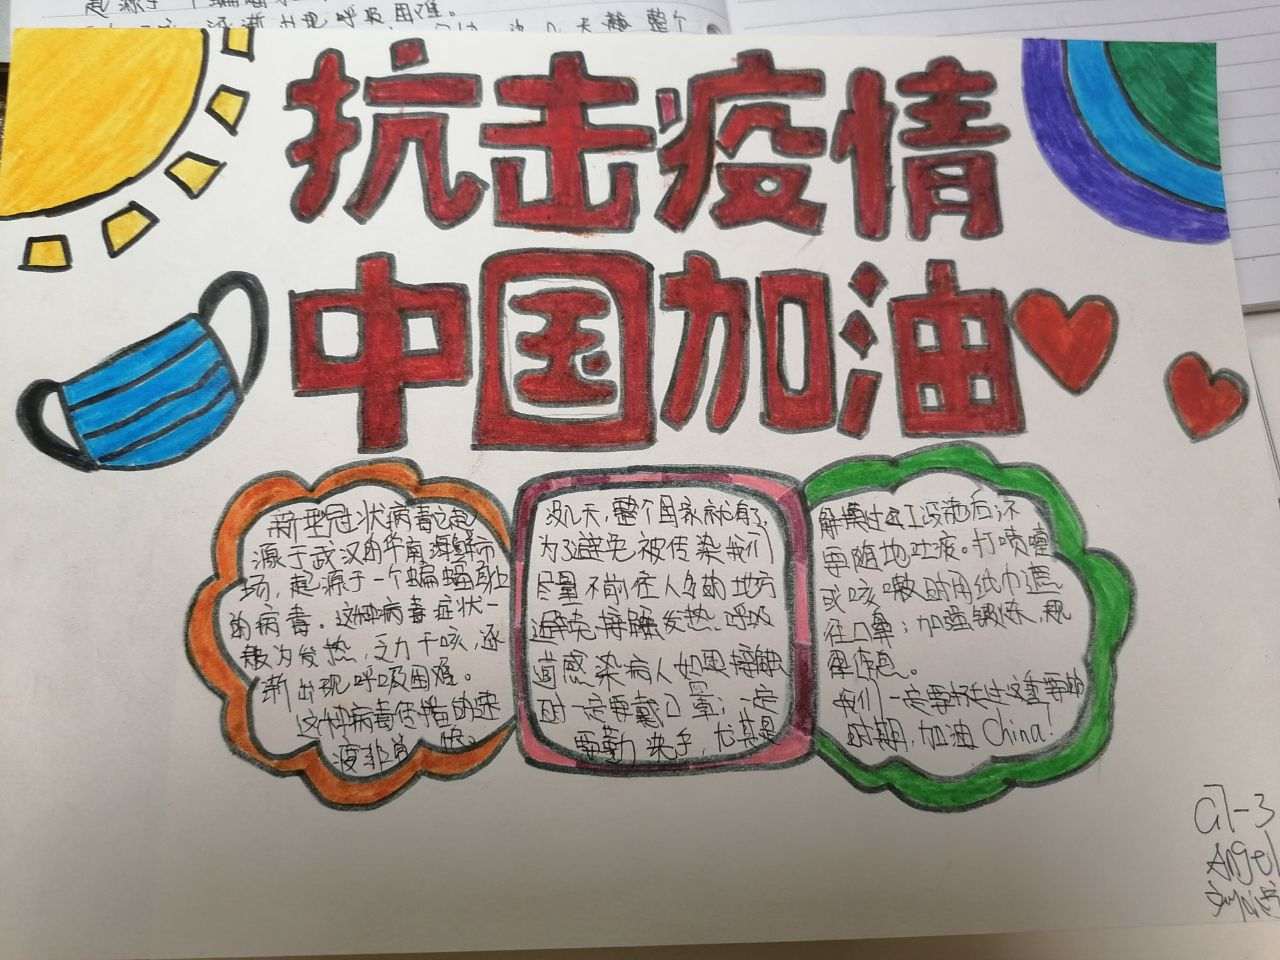 起源于一个蝙蝠
逐渐出现呼吸困难。
整个
抗击疫情
中国加油
新型冠状病毒它起
源于武汉的华南海鲜市
场，起源于一个蝙蝠身上
的病毒。这种病毒症状一
般为发热，乏力干咳，逐
渐出现呼吸困难。
这种病毒传播的速
度非常快。
没几天，整个国家就有了，
为了避免被传染我们
尽量不前往人多的地方
避免接触发热 呼吸
道感染病人如因接触
时一定要戴口罩；一定
要勤洗手，尤其是
解揉过。
要随地吐痰。打喷嚏
或咳嗽时用纸巾遮
往口罩；加强锻炼，规
律作息。
我们一定要抗住这重要的
时期，加油China!
G7-3
Angel